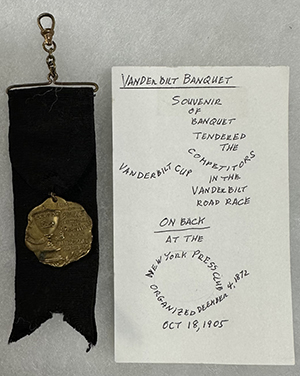 VANDERBILT BANQUET
SOUVENIR
OF
BANQUET
TENDERED
THE
COMPETITORS
VANDERBILT CUP
IN THE
VANDERBILT
ROAD RACE
ON BACK
AT THE
NEW YORK PRESS CLUB
ORGANIZED DECEMBER 4, 1872
OCT 18, 1905